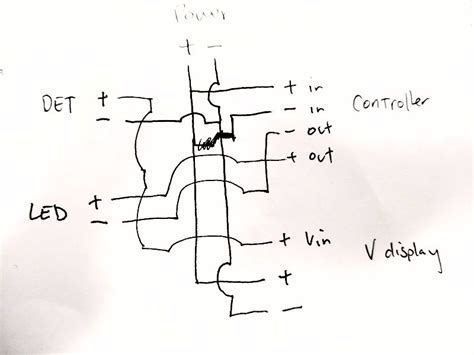 Power
+ -
+ in
DET +
- in Controller
-
- out
+ out
+
LED
-
+ Vin
V display
+
-